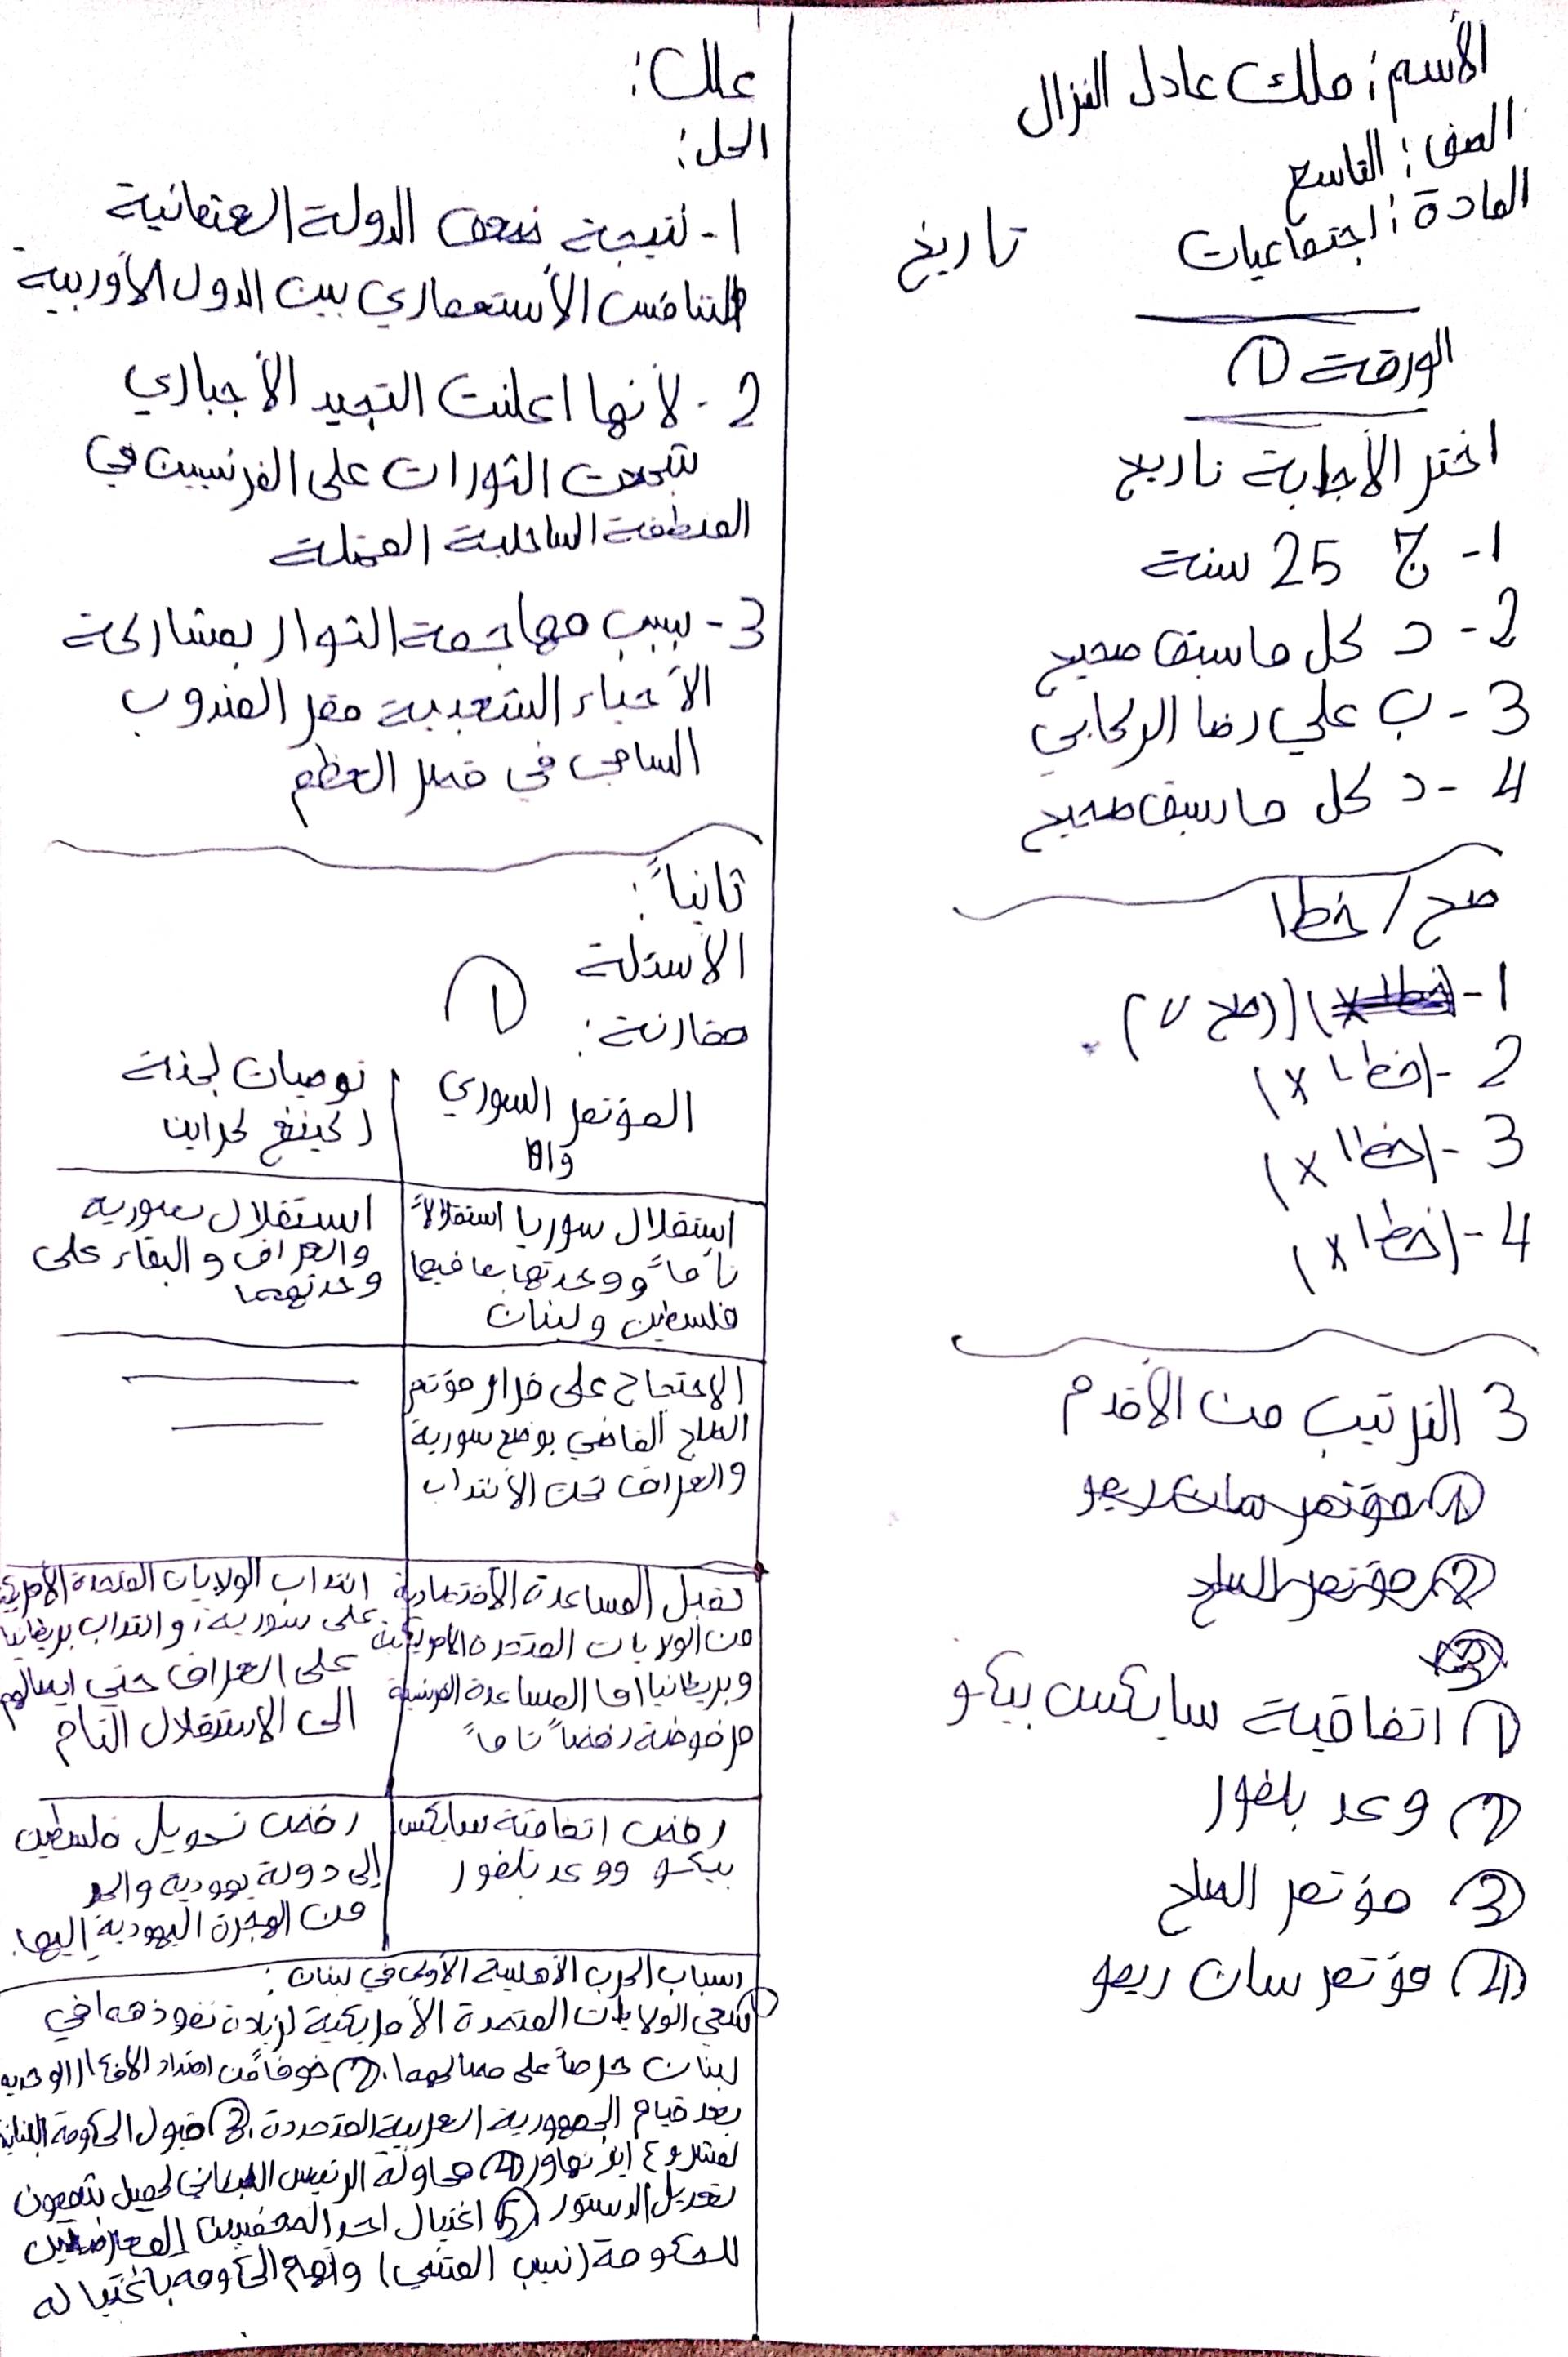 الأسم: ملك عادل النزال
الصف: التاسع
المادة: اجتماعيات تاريخ
الورقة ①
اختر الأجابة تاريخ
1- ج 25 سنة
2- د كل ماسبق صحيح
3- ب علي رضا الركابي
4- د كل ماسبق صحيح
صح / خطا
1- (خطا x) (صح √)
2- (خطا x)
3- (خطا x)
4- (خطا x)
3 الترتيب من الأقدم
① مؤتمر سان ريمو
② مؤتمر الصلح
③
① اتفاقية سايكس بيكو
② وعد بلفور
③ مؤتمر الصلح
④ مؤتمر سان ريمو
علل:
الحل:
1- نتيجة ضعف الدولة العثمانية
التنافس الأستعماري بين الدول الأوربية
2- لأنها اعلنت التجيد الأجباري
شجعت الثورات على الفرنسيين في
المنطقة الساحلية المحتلة
3- بسبب مهاجمة الثوار بمشاركة
الأحياء الشعبية مقر المندوب
السامي في قصر العظم
ثانياً:
الأسئلة ①
مقارنة:
المؤتمر السوري
توصيات لجنة
كينغ كراين
استقلال سوريا استقلالاً
تاماً ووحدتها بما فيها
فلسطين ولبنان
استقلال سورية
والعراق والبقاء على
وحدتهما
الاحتجاج على قرار مؤتمر
الصلح القاضي بوضع سورية
والعراق تحت الأنتداب
تقبل المساعدة الأقتصادية
من الولايات المتحدة الأمريكية
وبريطانيا اما المساعدة الفرنسية
مرفوضة رفضاً تاماً
انتداب الولايات المتحدة الأمريكية
على سورية، وانتداب بريطانيا
على العراق حتى ايصالهم
الى الاستقلال التام
رفض اتفاقية سايكس
بيكو ووعد بلفور
رفض تحويل فلسطين
إلى دولة يهودية والحد
من الهجرة اليهودية إليها.
اسباب الحرب الأهلية الأولى في لبنان:
① سعي الولايات المتحدة الأمريكية لزيادة نفوذها في
لبنان حرصاً على مصالحها. ② خوفاً من امتداد الأفكار الوحدوية
بعد قيام الجمهورية العربية المتحدة. ③ قبول الحكومة اللبنانية
لمشروع ايزنهاور ④ محاولة الرئيس اللبناني كميل شمعون
تعديل الدستور ⑤ اغتيال احد الصحفيين المعارضين
للحكومة (نسيب المتني) واتهام الحكومة باغتياله